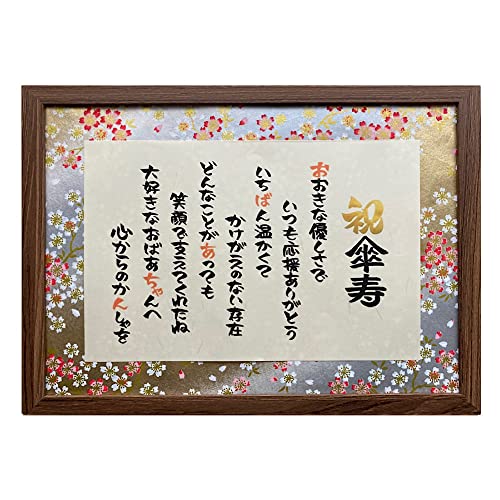 祝傘寿
おおきな優しさで
いつも応援ありがとう
いちばん温かくて
かけがえのない存在
どんなことがあっても
笑顔で支えてくれたね
大好きなおばあちゃんへ
心からのかんしゃを